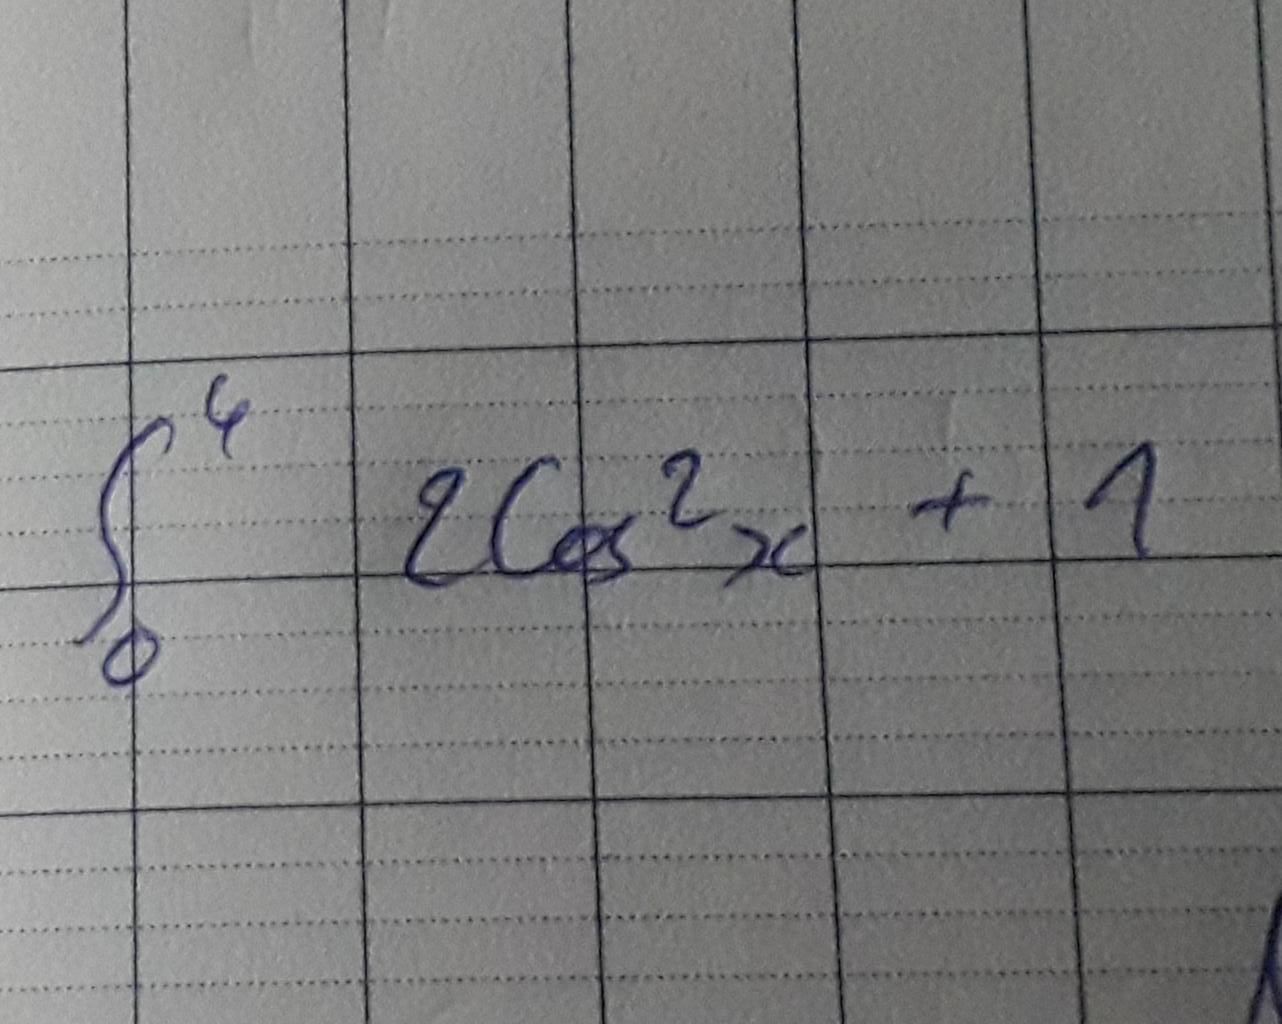 ∫₀⁴ 2Cos²x + 1